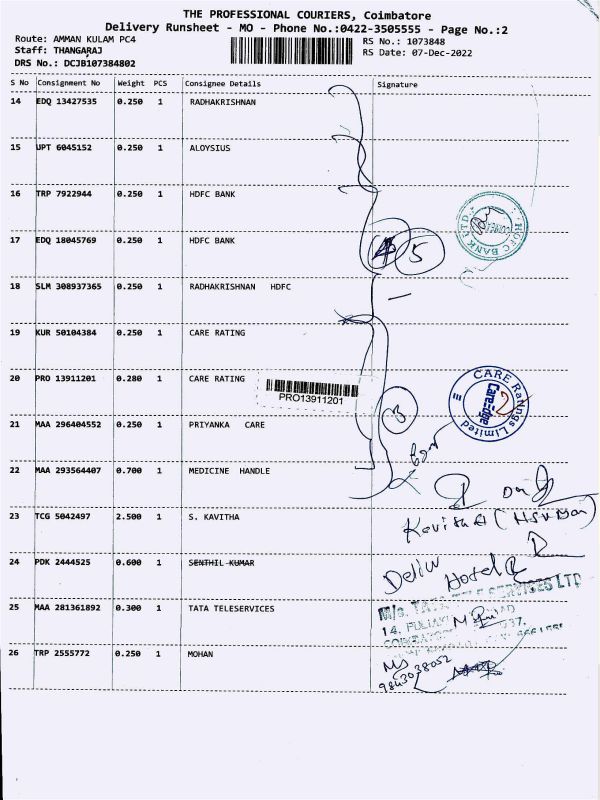 THE PROFESSIONAL COURIERS, Coimbatore
Delivery Runsheet - MO - Phone No.:0422-3505555 - Page No.:2
Route: AMMAN KULAM PC4
RS No.: 1073848
Staff: THANGARAJ
RS Date: 07-Dec-2022
DRS No.: DCJB107384802
S No Consignment No Weight PCS Consignee Details Signature
14 EDQ 13427535 0.250 1 RADHAKRISHNAN
15 UPT 6045152 0.250 1 ALOYSIUS
16 TRP 7922944 0.250 1 HDFC BANK
HDFC BANK LTD.
17 EDQ 18045769 0.250 1 HDFC BANK
5
18 SLM 308937365 0.250 1 RADHAKRISHNAN HDFC
19 KUR 50104384 0.250 1 CARE RATING
20 PRO 13911201 0.280 1 CARE RATING
PRO13911201
3
CARE Ratings Limited
CareEdge
2
21 MAA 296404552 0.250 1 PRIYANKA CARE
22 MAA 293564407 0.700 1 MEDICINE HANDLE
23 TCG 5042497 2.500 1 S. KAVITHA
Kavitha
24 PDK 2444525 0.600 1 SENTHIL KUMAR
Hotel
25 MAA 281361892 0.300 1 TATA TELESERVICES
M/s. TATA TELESERVICES LTD
26 TRP 2555772 0.250 1 MOHAN
9843038052